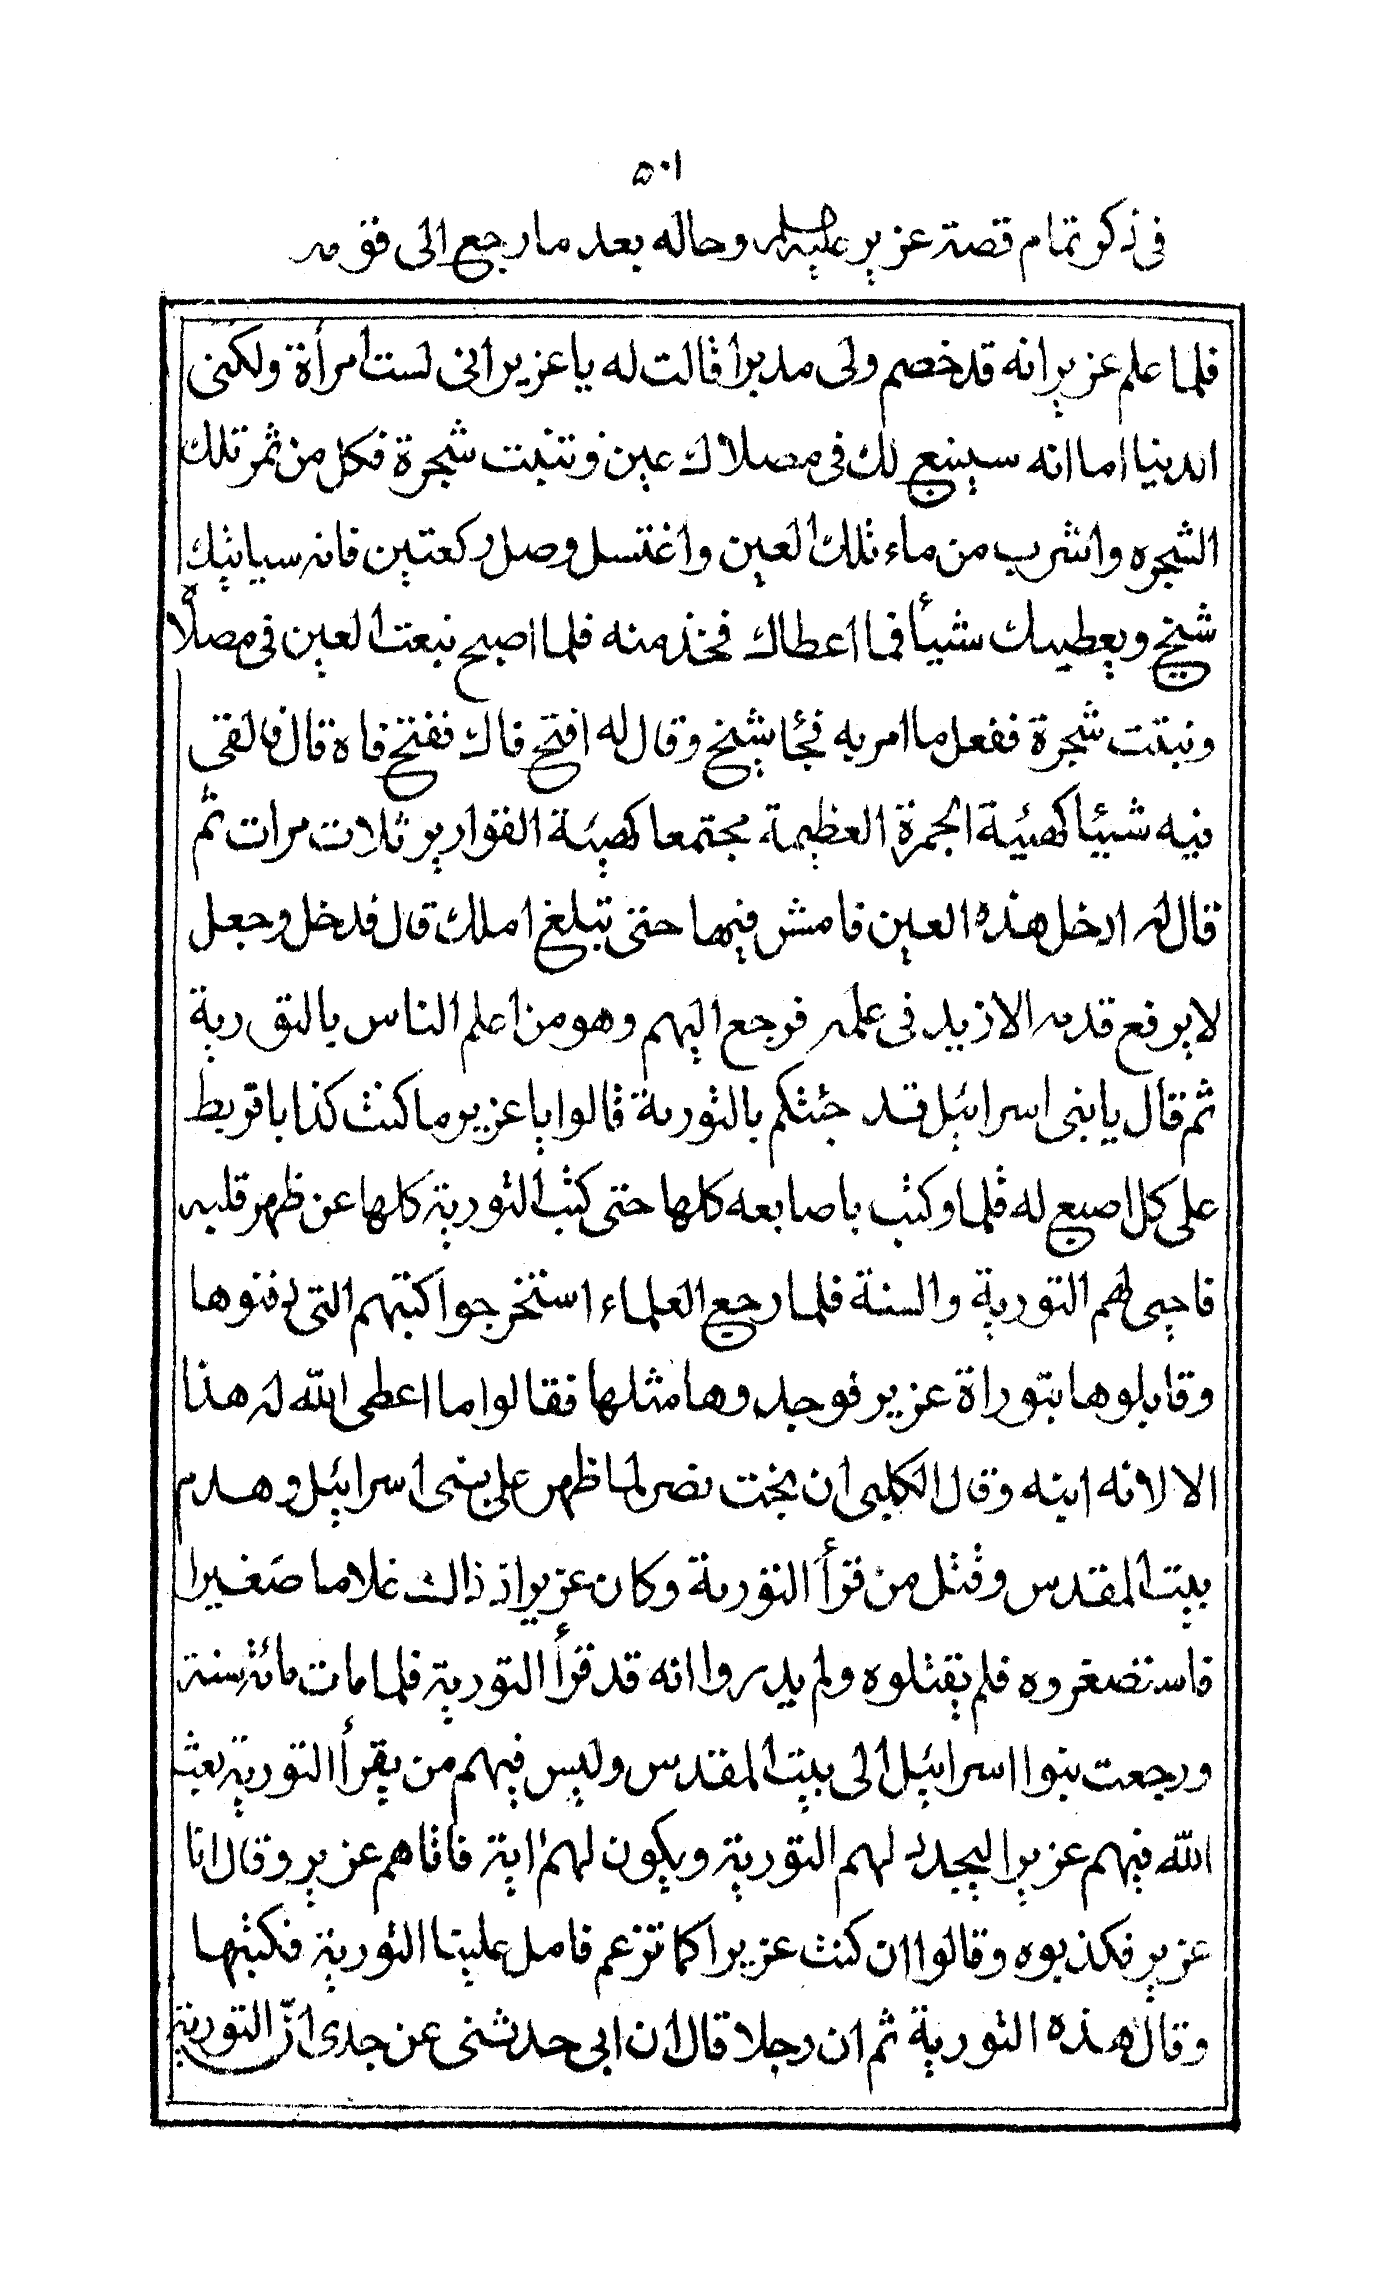 ٥٠١
فى ذكر تمام قصة عزير عليه السلم وحاله بعد ما رجع الى قومه
فلما علم عزير انه قد خصم ولى مدبرا قالت له يا عزير انى لست امرأة ولكنى
الدنيا اما انه سينبع لك فى مصلاك عين وتنبت شجرة فكل من ثمر تلك
الشجره واشرب من ماء تلك العين واغتسل وصل ركعتين فانه سياتيك
شيخ ويعطيك شيأ فما اعطاك فخذ منه فلما اصبح نبعت العين فى مصلاه
ونبتت شجرة ففعل ما امر به فجٔا شيخ وقال له افتح فاك ففتح فاه قال فالقى
فيه شيئا كهيئة الجمرة العظيمة مجتمعا كهيئة القوارير ثلاث مرات ثم
قال له ادخل هذه العين فامش فيها حتى تبلغ املك قال فدخل وجعل
لا يرفع قدمه الا زيد فى علمه فرجع اليهم وهو من اعلم الناس بالتورية
ثم قال يا بنى اسرائيل قد جئتكم بالتورية قالوا يا عزير ما كنت كذابا فربط
على كل اصبع له قلما وكتب باصابعه كلها حتى كتب التورية كلها عن ظهر قلبه
فاحيى لهم التورية والسنة فلما رجع العلماء استخرجوا كتبهم التى دفنوها
وقابلوها بتوراة عزير فوجدوها مثلها فقالوا ما اعطى الله له هذا
الا لانه ابنه وقال الكلبى ان بخت نصر لما ظهر على بنى اسرائيل وهدم
بيت المقدس وقتل من قرأ التورية وكان عزير اذ ذاك غلاما صغيرا
فاستضغروه فلم يقتلوه ولم يدروا انه قد قرأ التورية فلما مات مائة سنة
ورجعت بنوا اسرائيل الى بيت المقدس وليس فيهم من يقرأ التورية بعث
الله فيهم عزيرا ليجدد لهم التورية ويكون لهم اية فاتاهم عزير وقال انا
عزير فكذبوه وقالوا ان كنت عزيرا كما تزعم فامل علينا التورية فكتبها
وقال هذه التورية ثم ان رجلا قال ان ابى حدثنى عن جدى انّ التورية